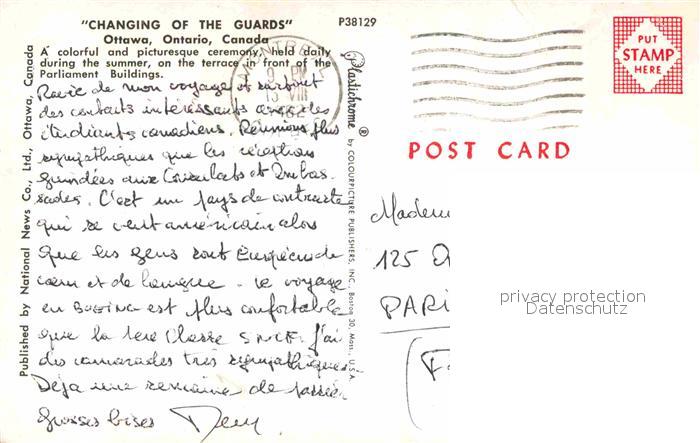 "CHANGING OF THE GUARDS"
Ottawa, Ontario, Canada
A colorful and picturesque ceremony, held daily
during the summer, on the terrace in front of the
Parliament Buildings.
P38129
Ravie de mon voyage et surtout
des contacts intéressants avec des
étudiants canadiens. Réunions plus
sympathiques que les réceptions
guindées aux Consulats et Ambas
sades. C'est un pays de contraste
qui se veut américain alors
que les gens sont Européens de
cœur et de langue. Le voyage
en BOEING est plus confortable
que la 1ère Classe SNCF. J'ai
des camarades très sympathiques
Déjà une semaine de passée
Grosses bises
Published by National News Co., Ltd., Ottawa, Canada
Plastichrome ® by COLOURPICTURE PUBLISHERS, INC., Boston 30, Mass., U.S.A.
MONTREAL
9 PM
13 VIII
PUT
STAMP
HERE
POST CARD
Madem
125
PARI
privacy protection
Datenschutz